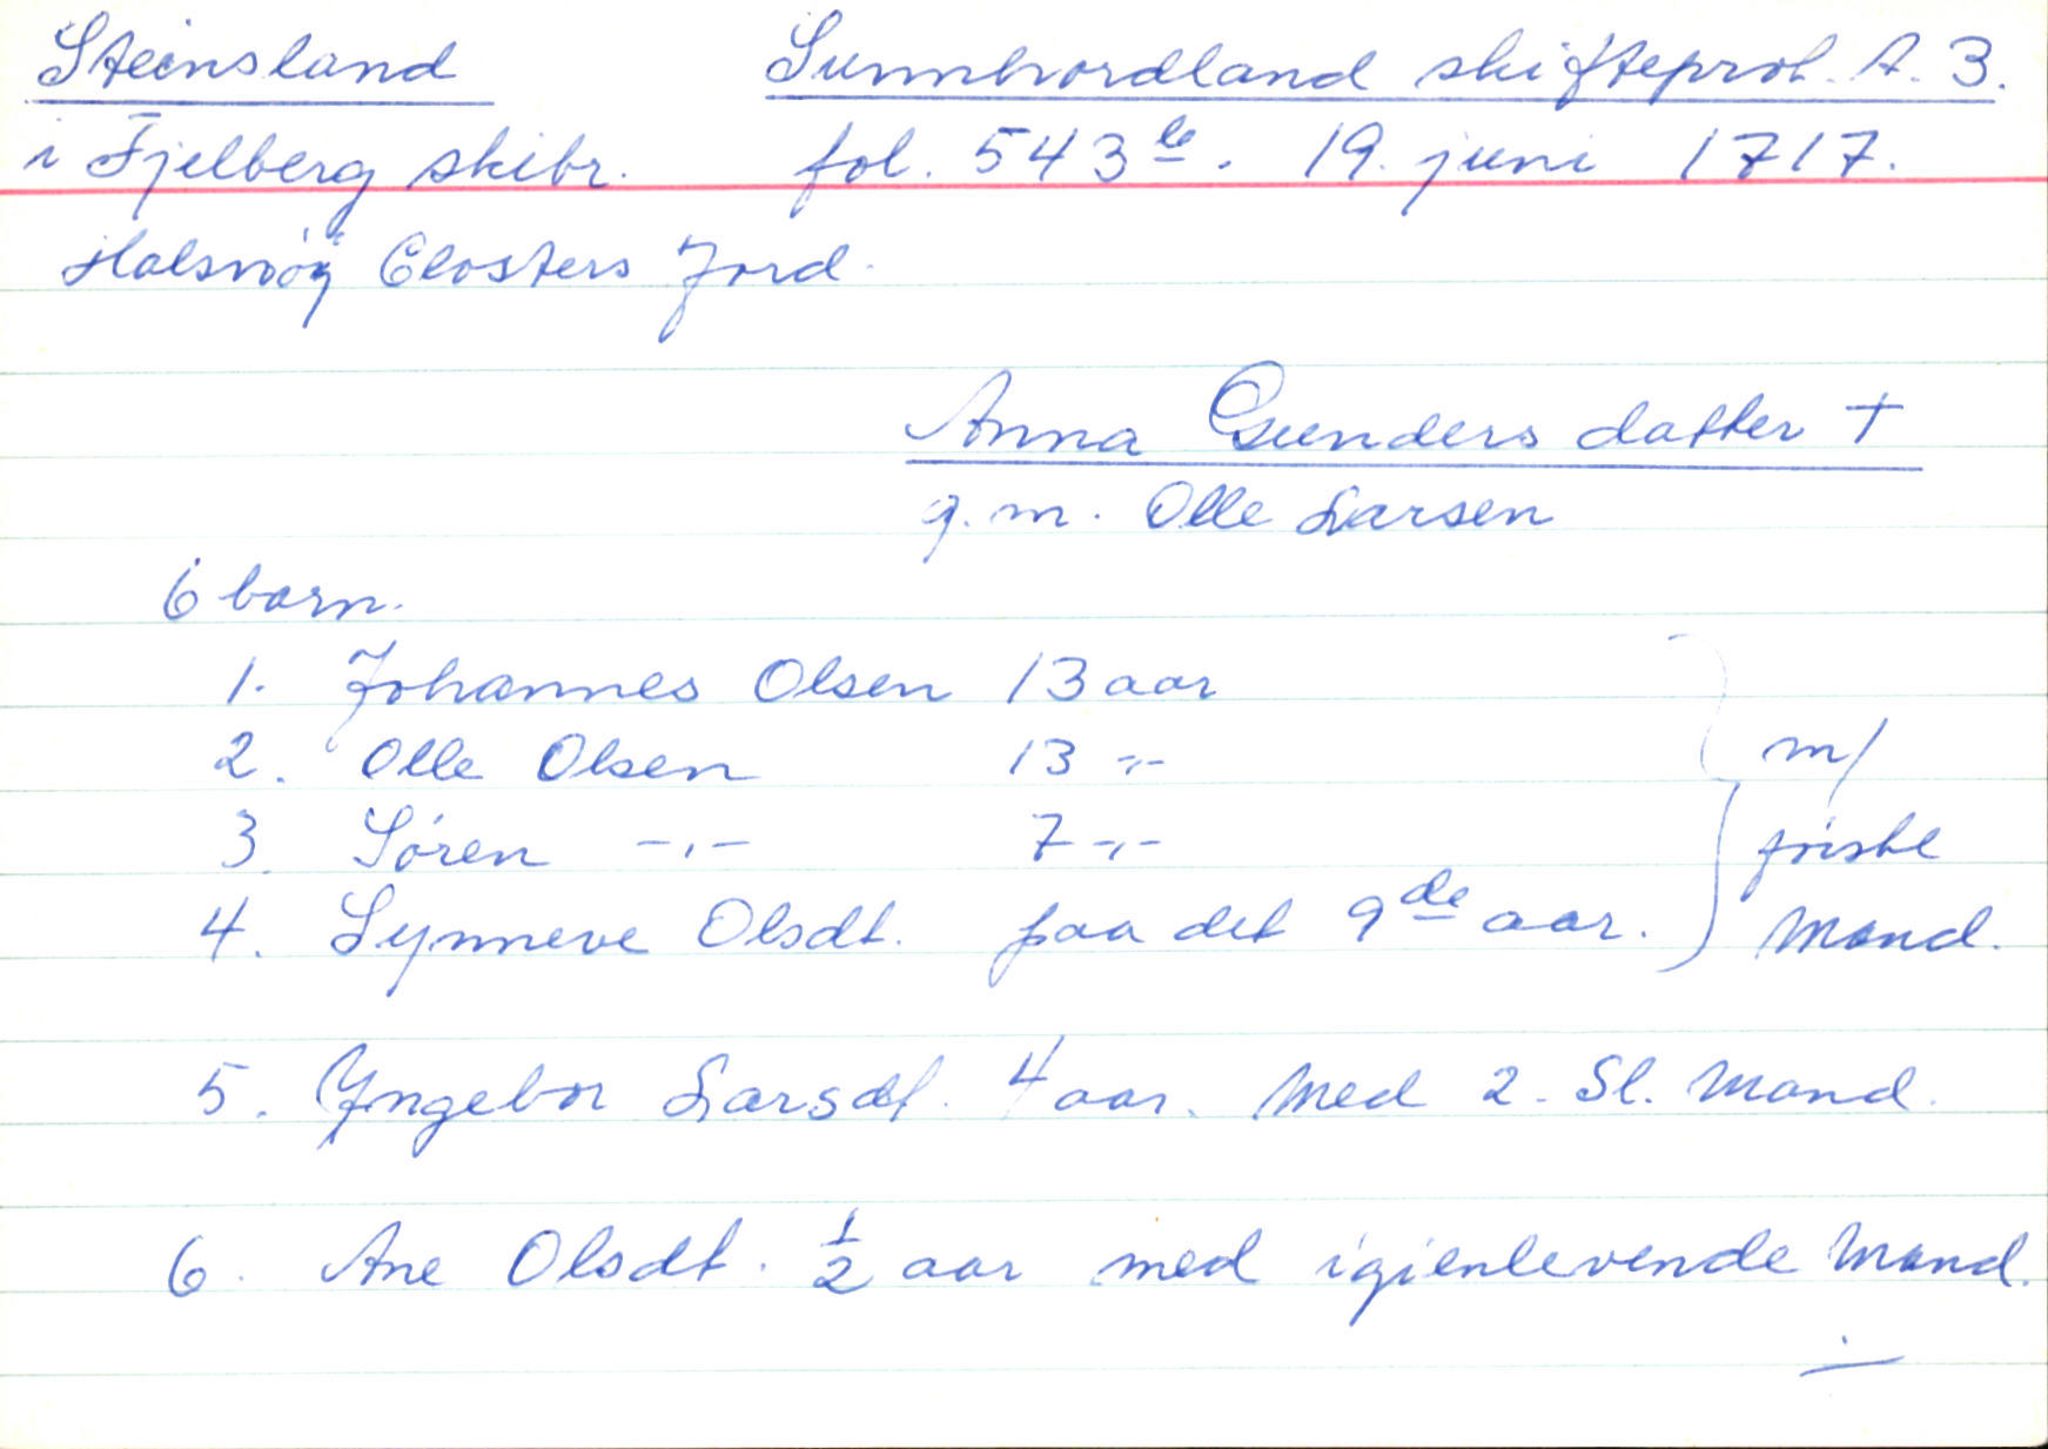 Steinsland Sunnhordland skifteprot. A. 3.
i Fjelberg skibr. fol. 543 b. 19. juni 1717.
Halsnøÿ Closters Jord.
Anna Gunders datter †
g. m. Olle Larsen
6 born.
1. Johannes Olsen 13 aar
2. Olle Olsen 13 -"-
3. Sören -"- 7 -"-
4. Synneve Olsdt. paa det 9de aar.
m/
første
Mand.
5. Yngebor Larsdt. 4 aar. Med 2. Sl. Mand.
6. Ane Olsdt. ½ aar med igienlevende Mand.